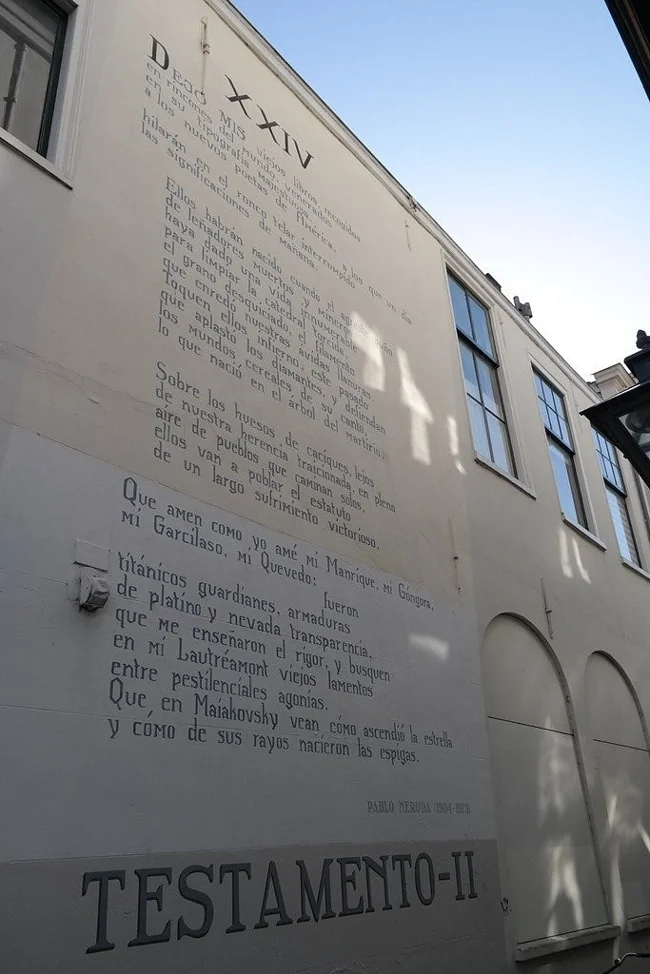 XXIV
DEJO MIS viejos libros, recogidos
en rincones del mundo, venerados
en su tipografía majestuosa,
a los nuevos poetas de América,
a los que un día
hilarán en el ronco telar interrumpido
las significaciones de mañana.
Ellos habrán nacido cuando el agreste puño
de leñadores muertos y mineros
haya dado una vida innumerable
para limpiar la catedral torcida,
el grano desquiciado, el filamento
que enredó nuestras ávidas llanuras.
Toquen ellos infierno, este pasado
que aplastó los diamantes, y defiendan
los mundos cereales de su canto,
lo que nació en el árbol del martirio.
Sobre los huesos de caciques, lejos
de nuestra herencia traicionada, en pleno
aire de pueblos que caminan solos,
ellos van a poblar el estatuto
de un largo sufrimiento victorioso.
Que amen como yo amé mi Manrique, mi Góngora,
mi Garcilaso, mi Quevedo:
fueron
titánicos guardianes, armaduras
de platino y nevada transparencia,
que me enseñaron el rigor, y busquen
en mi Lautréamont viejos lamentos
entre pestilenciales agonías.
Que en Maiakovsky vean cómo ascendió la estrella
y cómo de sus rayos nacieron las espigas.
PABLO NERUDA (1904-1973)
TESTAMENTO-II